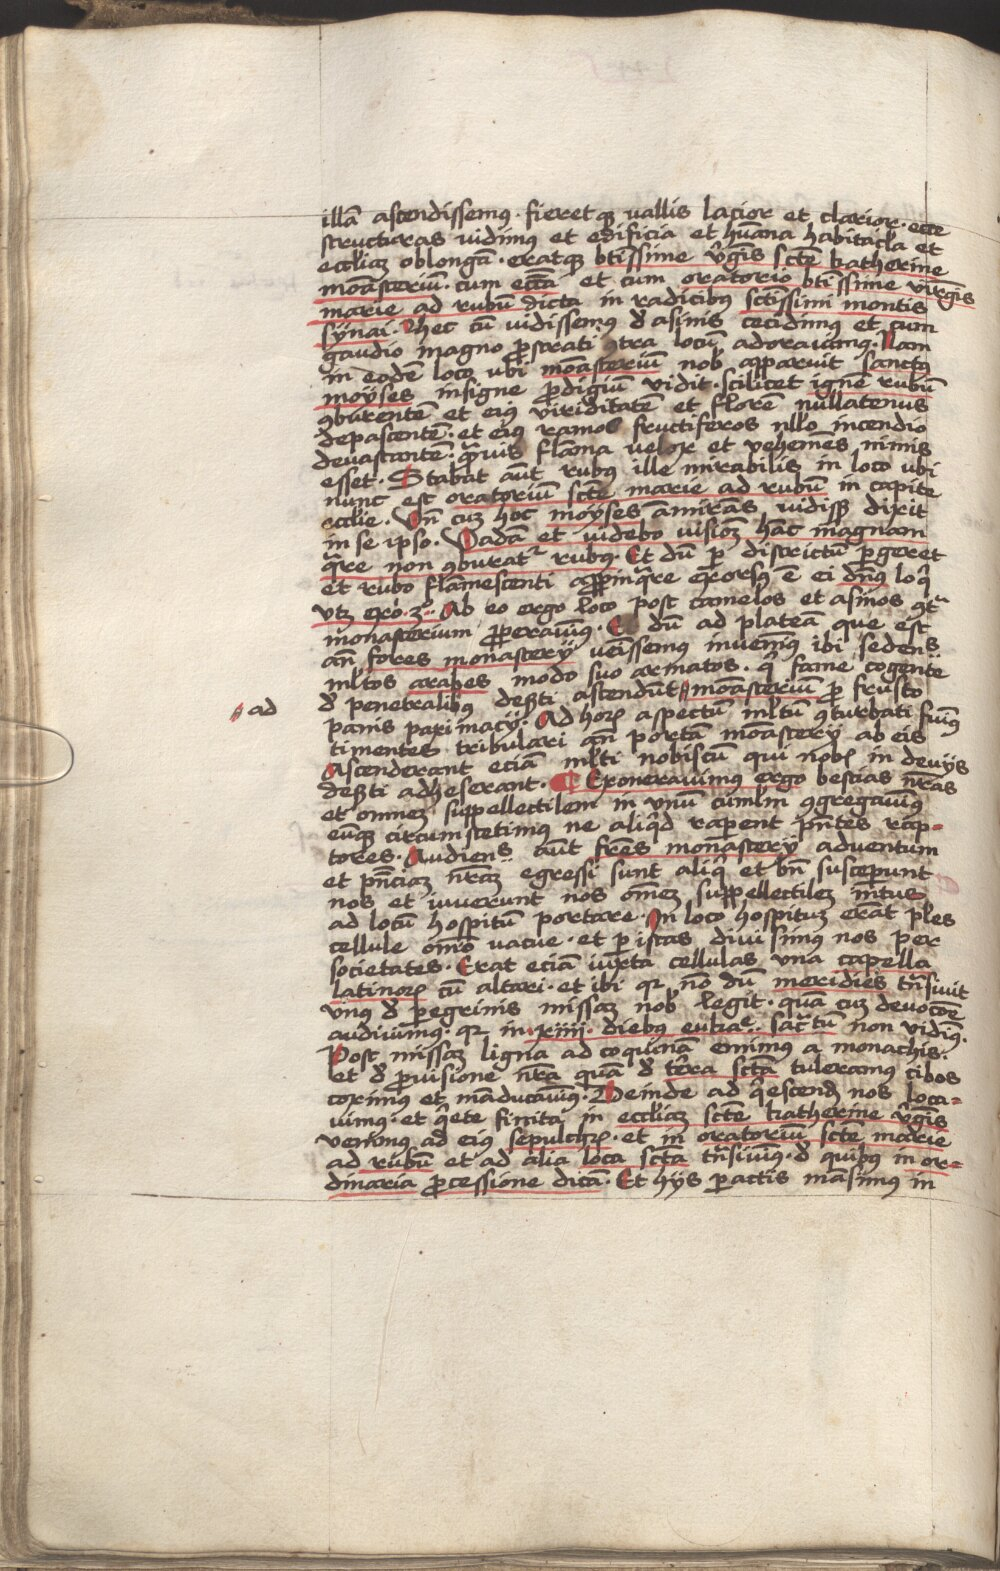 illā ascendissemꝰ · fieret qꝫ vallis lacior et clarior · ecce
structuras vidimꝰ et edificia et hūana habitacl̄a et
eccl̄iaꝫ oblongā · eratqꝫ btīssime v̄gīs sctē katherine
monasteriū · cum ecctā et cum oratorio btīssime virgīs
marie ad rubū dicta in radicibꝰ sctīssimi montis
synai · Hec cū vidissemꝰ d̄ asinis cecidimꝰ et cum
gaudio magno ꝓstrati ꝯtra locū adorauimꝰ · Nam
in eodē loco vbi monasteriū nob̄ apparuit sanctꝰ
moyses insigne ꝓdigiū vidit · scilicet ignē rubū
ꝯburentē et eiꝰ viriditatē et florē nullatenus
depascentē · et eiꝰ ramos fructiferos nll̄o incendio
deuastantē · qͣuis flāma velox et vehemēs nimis
esset · Stabat aūt rubꝰ ille mirabilis in loco vbi
nunc est oratoriū sctē marie ad rubū in capite
eccl̄ie · Vn̄ cuꝫ hoc moyses amirās vidissꝫ dixit
in se ipso · Vadā et videbo visionē hāc magnam
qͣre non ꝯburatᷣ rubꝰ · Et dū ꝑ districtū ꝑgeret
et rubo flāmescenti appͥnqͣre exorsꝰ ē ei dn̄s loqͥ
vtꝫ exo · 3º · Ab eo ergo loco post camelos et asinos ꝯtͣ
monasterium ꝓperauimꝰ · Et dū ad plateā que est
an̄ fores monastery venissemꝰ inuenimꝰ ibi sedens
ml̄tos arabes modo suo armatos · qͥ fame cogente
d̄ penetralibꝰ deẞti ascendūt monasteriū ꝓ frusto
ad
panis paximacy · Ad horꝝ aspectū ml̄tū ꝯturbati fuimꝰ
timentes tribulari an̄ portā monastery ab eis
Ascenderant eciā ml̄ti nobiscū qui nobꝫ in deuys
deẞti adheserant · Exonerauimus ergo bestias nr̄as
et omneꝫ suppellectilem in vnū cuml̄m ꝯgregauimꝰ
eūqꝫ circumstetimꝰ ne aliqͥd raperent pn̄tes rap-
tores · Audiens aūt fr̄es monastery aduentum
et pn̄ciaꝫ nr̄aꝫ egressi sunt aliqͥ et bn̄ susceperunt
nos et iuuerunt nos om̄eꝫ suppellectileꝫ intus
ad locū hospitū portare · In loco hospituꝫ erāt pl̄es
cellule omnīo vacue · et ꝑ istas diuisimꝰ nos per
societates · Erat eciā iuxta cellulas vna capella
latinoꝝ cū altari · et ibi qꝛ nō dū meridies trn̄siuit
vnꝰ d̄ peregrinis missaꝫ nob̄ legit · quā cuꝫ deuocōe
audiuimꝰ · qꝛ in · xiiii · diebꝰ eukaᵉ · sac̄rtū non vidimꝰ ·
Post missaꝫ ligna ad coquinā emimꝰ a monachis ·
et d̄ ꝓuisione nr̄a quā d̄ tr̄ra sctā tuleramꝰ cibos
coximꝰ et māducauimꝰ · Deinde ad qͥescendꝫ nos loca-
uimꝰ · et qͥete finita in eccl̄iaꝫ sctē katherine v̄gīs
venimꝰ ad eiꝰ sepulchrꝫ · et in oratoriū sctē marie
ad rubū et ad alia loca sctā trn̄siuimꝰ · d̄ quibꝰ in or-
dinaria ꝓcessione dicā · Et hys peractis māsimꝰ in